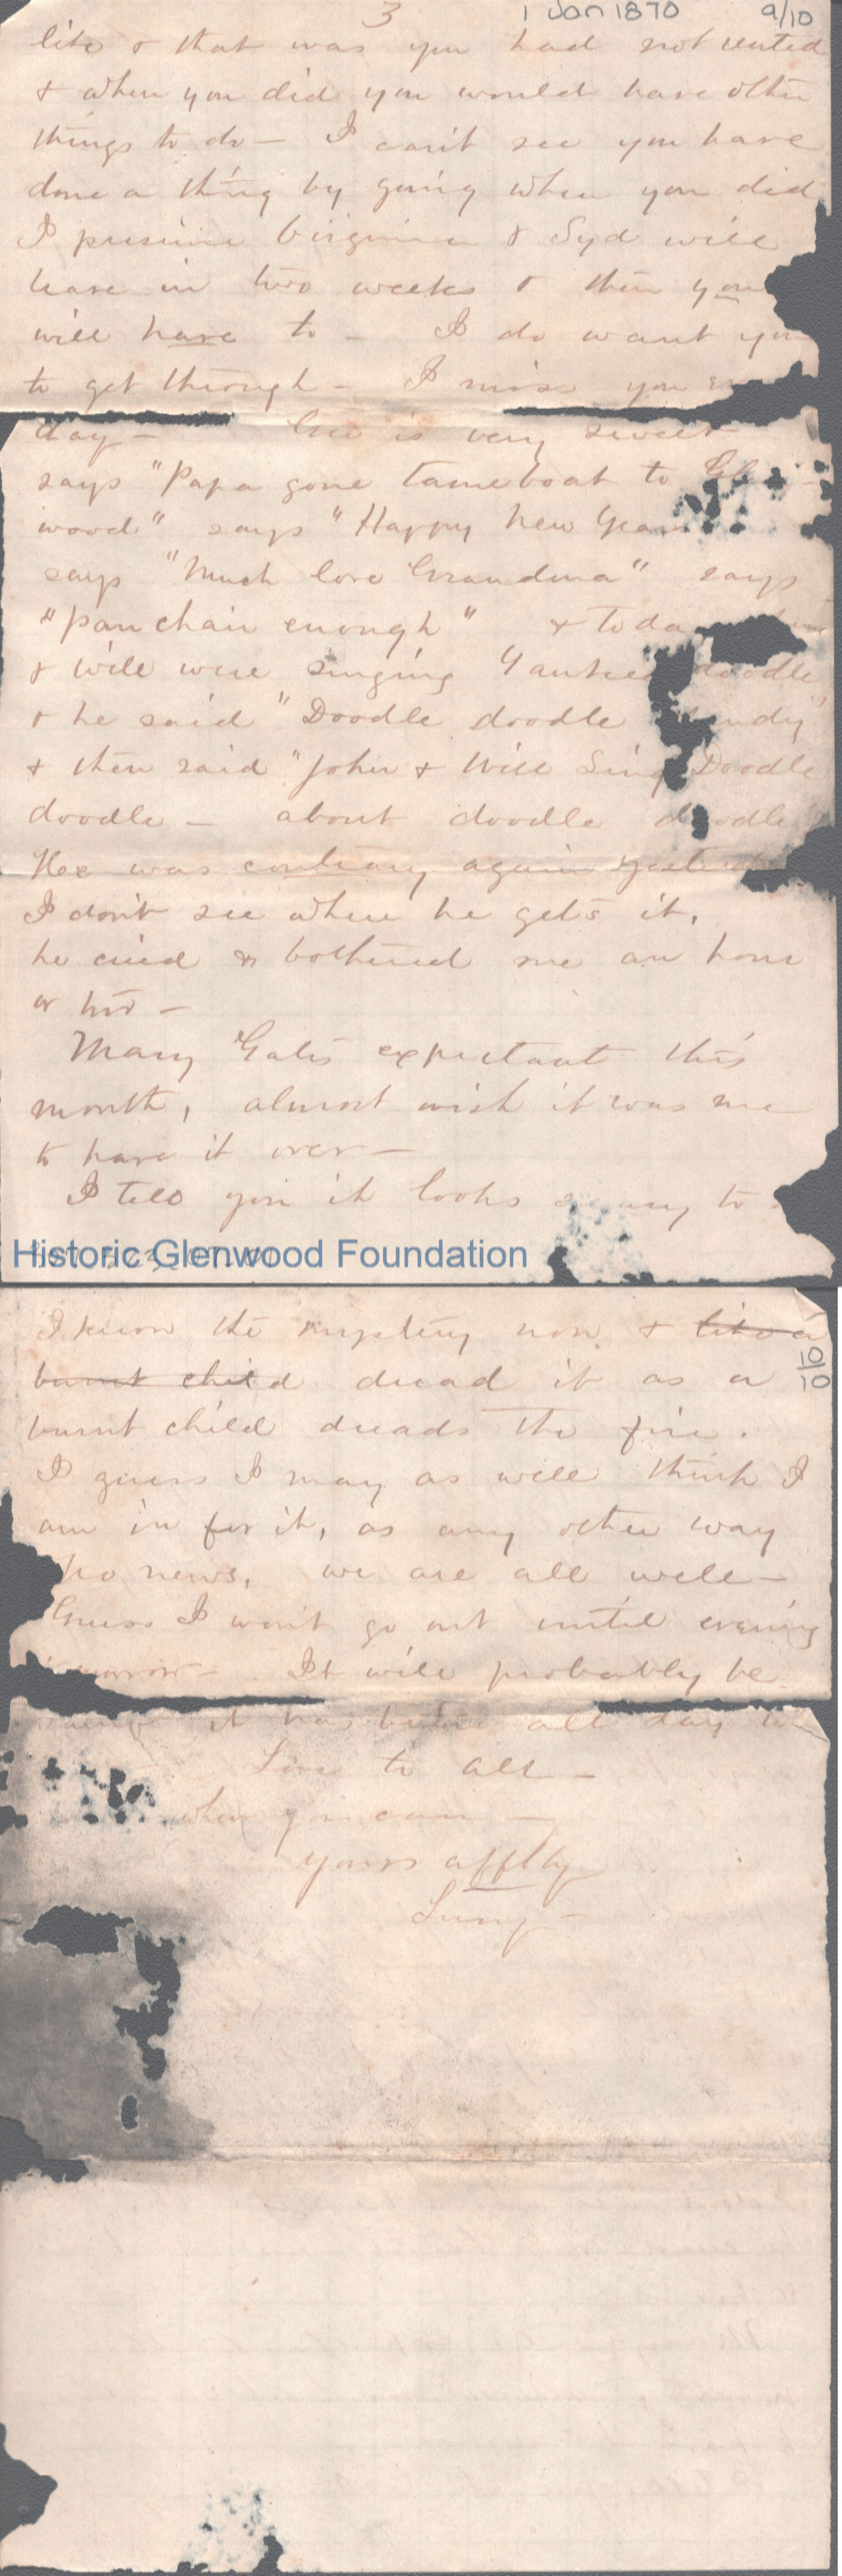 3 1 Jan 1870 9/10
like & that was you had not rented
& when you did you would have other
things to do — I can't see you have
done a thing by going when you did
I presume Virginia & Syd will
leave in two weeks & then you
will have to — I do want you
to get through — I miss you
day — is very sweet
says "Papa gone tameboat to
wood" says "Happy New Year
says "Much love Grandma" says
"pan chair enough" & toda
& Will were singing Yankee doodle
& he said "Doodle doodle ndy"
& then said "John & Will Sing Doodle
doodle — about doodle doodle"
He was contrary again
I don't see where he gets it,
he cried & bothered me an hour
or two —
Mary Gates expectant this
month, almost wish it was me
to have it over —
I tell you it looks to
Historic Glenwood Foundation
I know the mystery now & like a
burnt child dread it as a 10/10
burnt child dreads the fire.
I guess I may as well think I
am in for it, as any other way
No news, we are all well —
Guess I won't go out until evening
It will probably be
it has been all day
Love to all —
when you can —
yours afftly